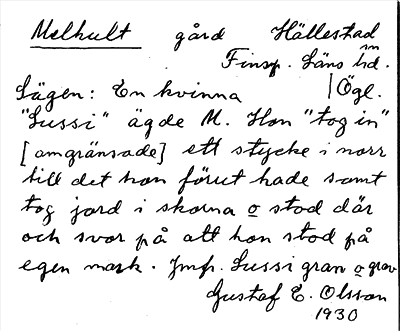 Melhult gård Hällestad
sn
Finsp. Läns hd.
Sägen: En kvinna | Ögl.
"Lussi" ägde M. Hon "tog in"
[omgränsade] ett stycke i norr
till det hon förut hade samt
tog jord i skorna o stod där
och svor på att hon stod på
egen mark. Jmfr. Lussigran o grav
Gustaf E. Olsson
1930